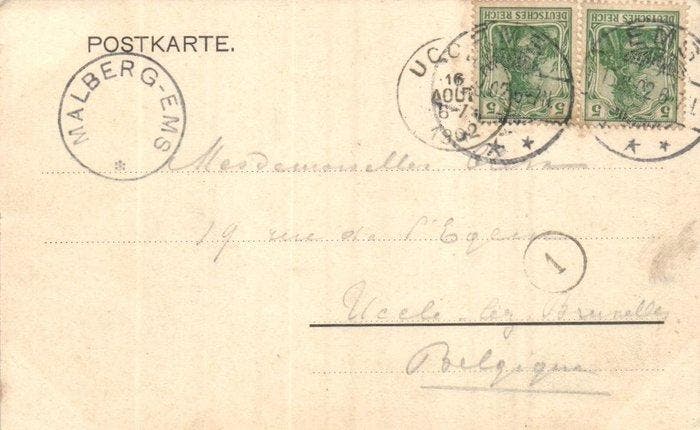 POSTKARTE.
MALBERG-EMS
*
UCCLE
16
AOUT
1902
DEUTSCHES REICH
5
DEUTSCHES REICH
5
EMS
Mesdemoiselles
19 rue de l'Eglise
1
Uccle-lez-Bruxelles
Belgique